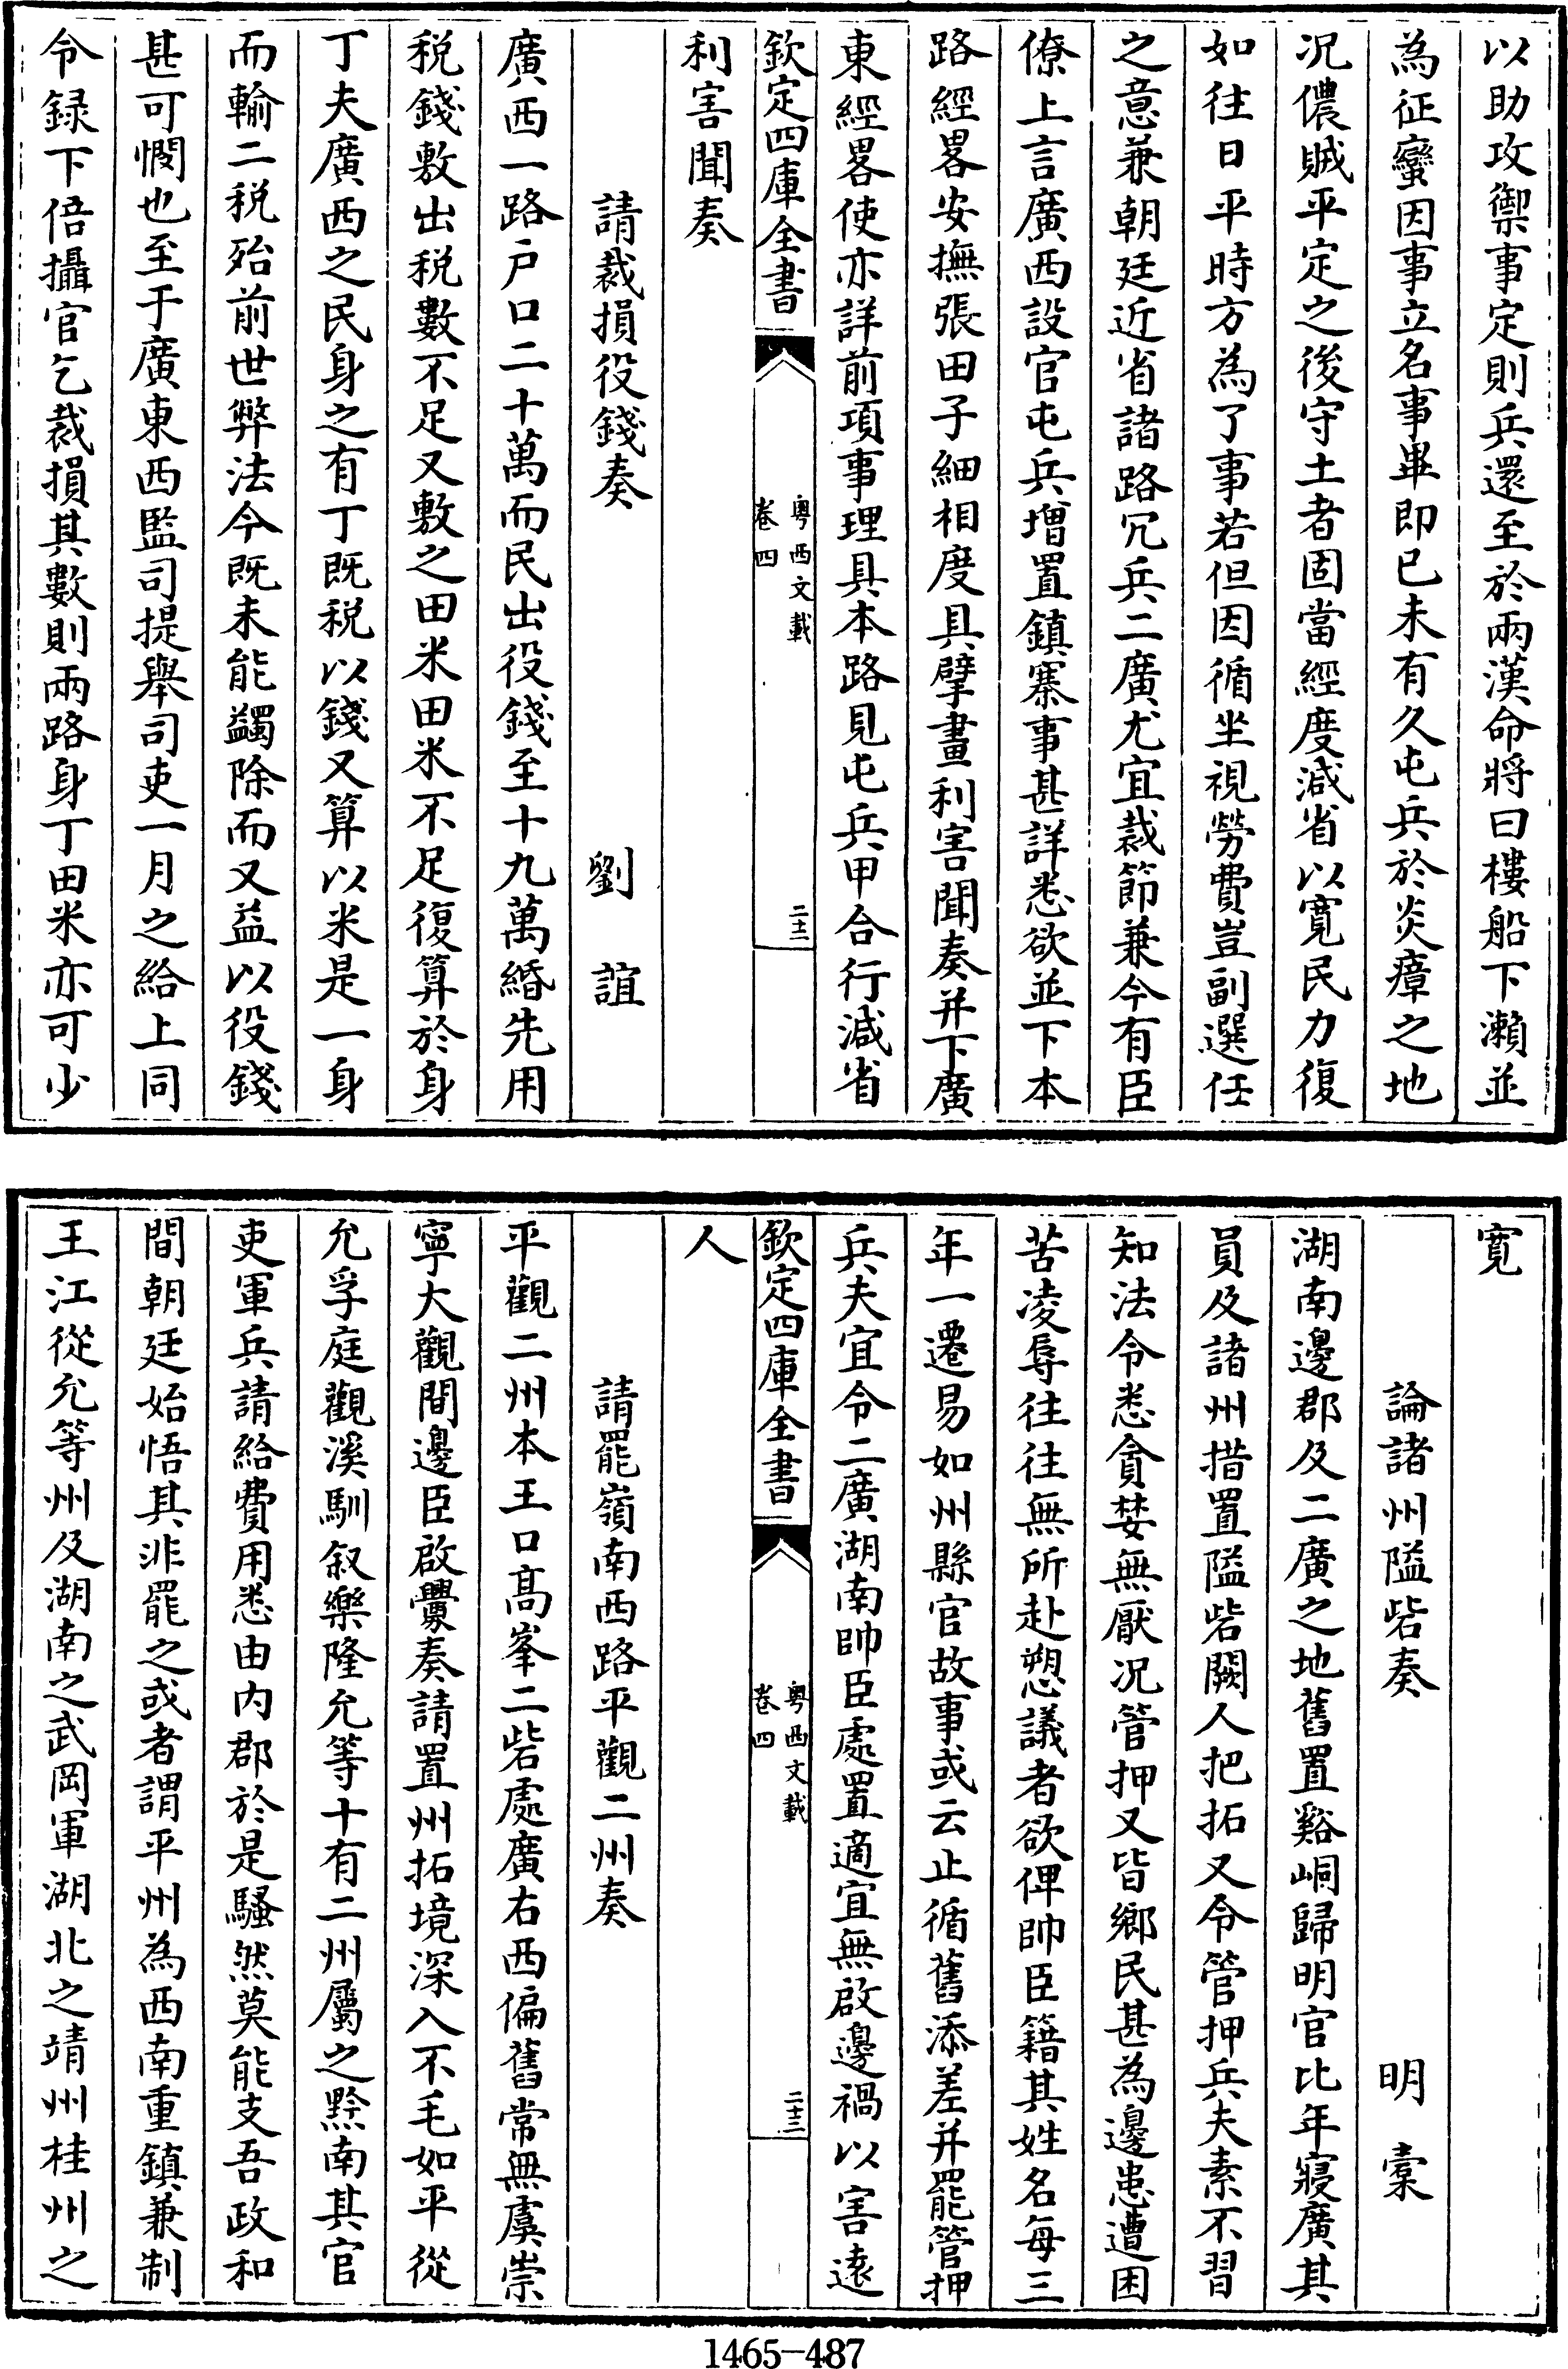 以助攻禦事定則兵還至於兩漢命將曰樓船下瀨並
為征蠻因事立名事畢即已未有久屯兵於炎瘴之地
况儂賊平定之後守土者固當經度減省以寛民力復
如往日平時方為了事若但因循坐視勞費豈副選任
之意兼朝廷近省諸路冗兵二廣尤宜裁節兼今有臣
僚上言廣西設官屯兵增置鎮寨事甚詳悉欲並下本
路經畧安撫張田子細相度具擘畫利害聞奏并下廣
東經畧使亦詳前項事理具本路見屯兵甲合行減省
欽定四庫全書
粤西文載
卷四
二十二
利害聞奏
請裁損役錢奏
劉誼
廣西一路户口二十萬而民出役錢至十九萬緡先用
税錢敷出税數不足又敷之田米田米不足復算於身
丁夫廣西之民身之有丁既税以錢又算以米是一身
而輸二税殆前世弊法今既未能蠲除而又益以役錢
甚可憫也至于廣東西監司提舉司吏一月之給上同
令録下倍攝官乞裁損其數則兩路身丁田米亦可少
寛
論諸州隘砦奏
明橐
湖南邊郡及二廣之地舊置谿峒歸明官比年寝廣其
員及諸州措置隘砦闕人把拓又令管押兵夫素不習
知法令悉貪婪無厭况管押又皆鄉民甚為邊患遭困
苦凌辱往往無所赴愬議者欲俾帥臣籍其姓名每三
年一遷易如州縣官故事或云止循舊添差并罷管押
兵夫宜令二廣湖南帥臣處置適宜無啟邊禍以害逺
欽定四庫全書
粤西文載
卷四
二十三
人
請罷嶺南西路平觀二州奏
平觀二州本王口髙峯二砦處廣右西偏舊常無虞崇
寧大觀間邊臣啟釁奏請置州拓境深入不毛如平從
允孚庭觀溪馴叙樂隆允等十有二州屬之黔南其官
吏軍兵請給費用悉由内郡於是騷然莫能支吾政和
間朝廷始悟其非罷之或者謂平州為西南重鎮兼制
王江從允等州及湖南之武岡軍湖北之靖州桂州之
1465-487